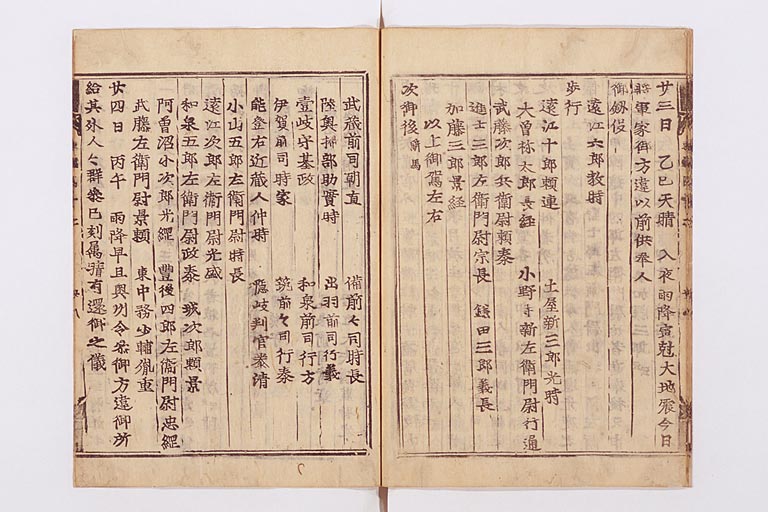 廿三日 乙巳天晴 入夜雨降寅尅大地震今日
将軍家御方違以前供奉人
御劔役
遠江六郎教時
歩行
遠江十郎頼連 土屋新三郎光時
大曽祢太郎長経 小野寺新左衛門尉行通
武藤次郎兵衛尉頼泰
進士三郎左衛門尉宗長 鎌田三郎義長
加藤三郎景経
以上御駕左右
次御後 騎馬
武蔵前司朝直 備前々司時長
陸奥掃部助實時 出羽前司行義
壹岐守基政 和泉前司行方
伊賀前司時家 筑前々司行泰
能登右近蔵人仲時 隠岐判官泰清
小山五郎左衛門尉時長
遠江次郎左衛門尉光盛
和泉五郎左衛門尉政泰 城次郎頼景
阿曽沼小次郎光綱 豊後四郎左衛門尉忠綱
武藤左衛門尉景頼 東中務少輔胤重
廿四日 丙午 雨降早旦與州令参御方違御所
給其外人々群参巳刻属霽有還御之儀